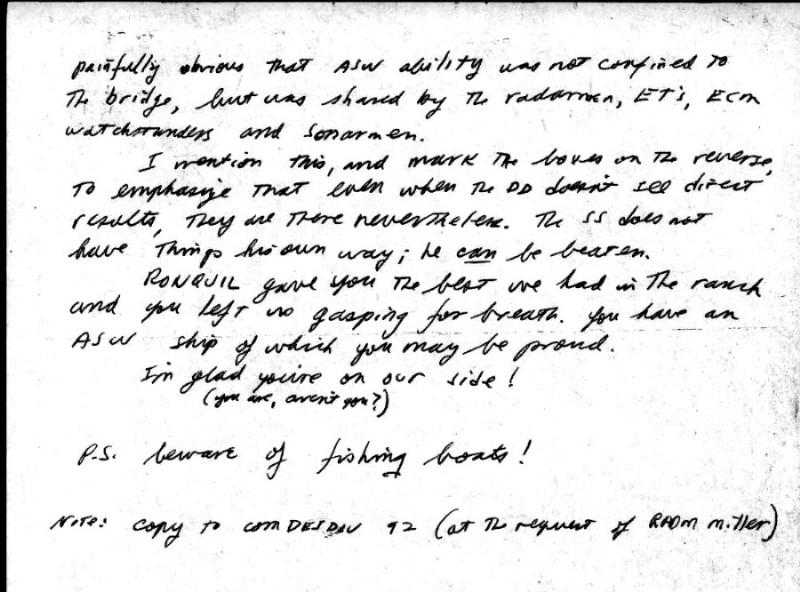 painfully obvious that ASW ability was not confined to
the bridge, but was shared by the radarmen, ET's, ECM
watchstanders and sonarmen.
I mention this, and mark the boxes on the reverse,
to emphasize that even when the DD doesn't see direct
results, they are there nevertheless. The SS does not
have things his own way; he can be beaten.
RONQUIL gave you the best we had in the ranch
and you left us gasping for breath. You have an
ASW ship of which you may be proud.
I'm glad you're on our side!
(you are, aren't you?)
P.S. beware of fishing boats!
Note: copy to COMDESDIV 92 (at the request of RADM Miller)